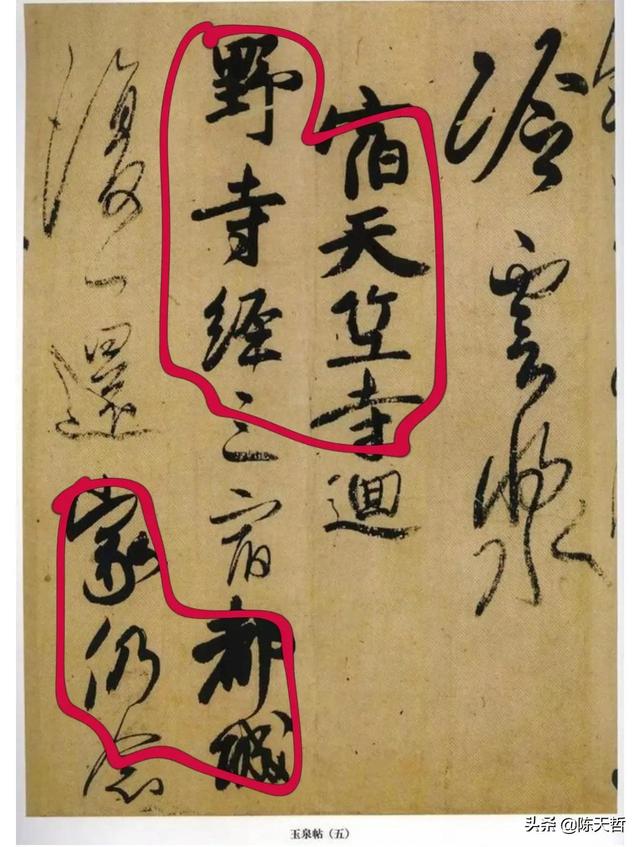 冷雲
宿天竺寺迴
野寺經三宿都城
復一還家仍念
玉泉帖（五）
头条 @陈天哲